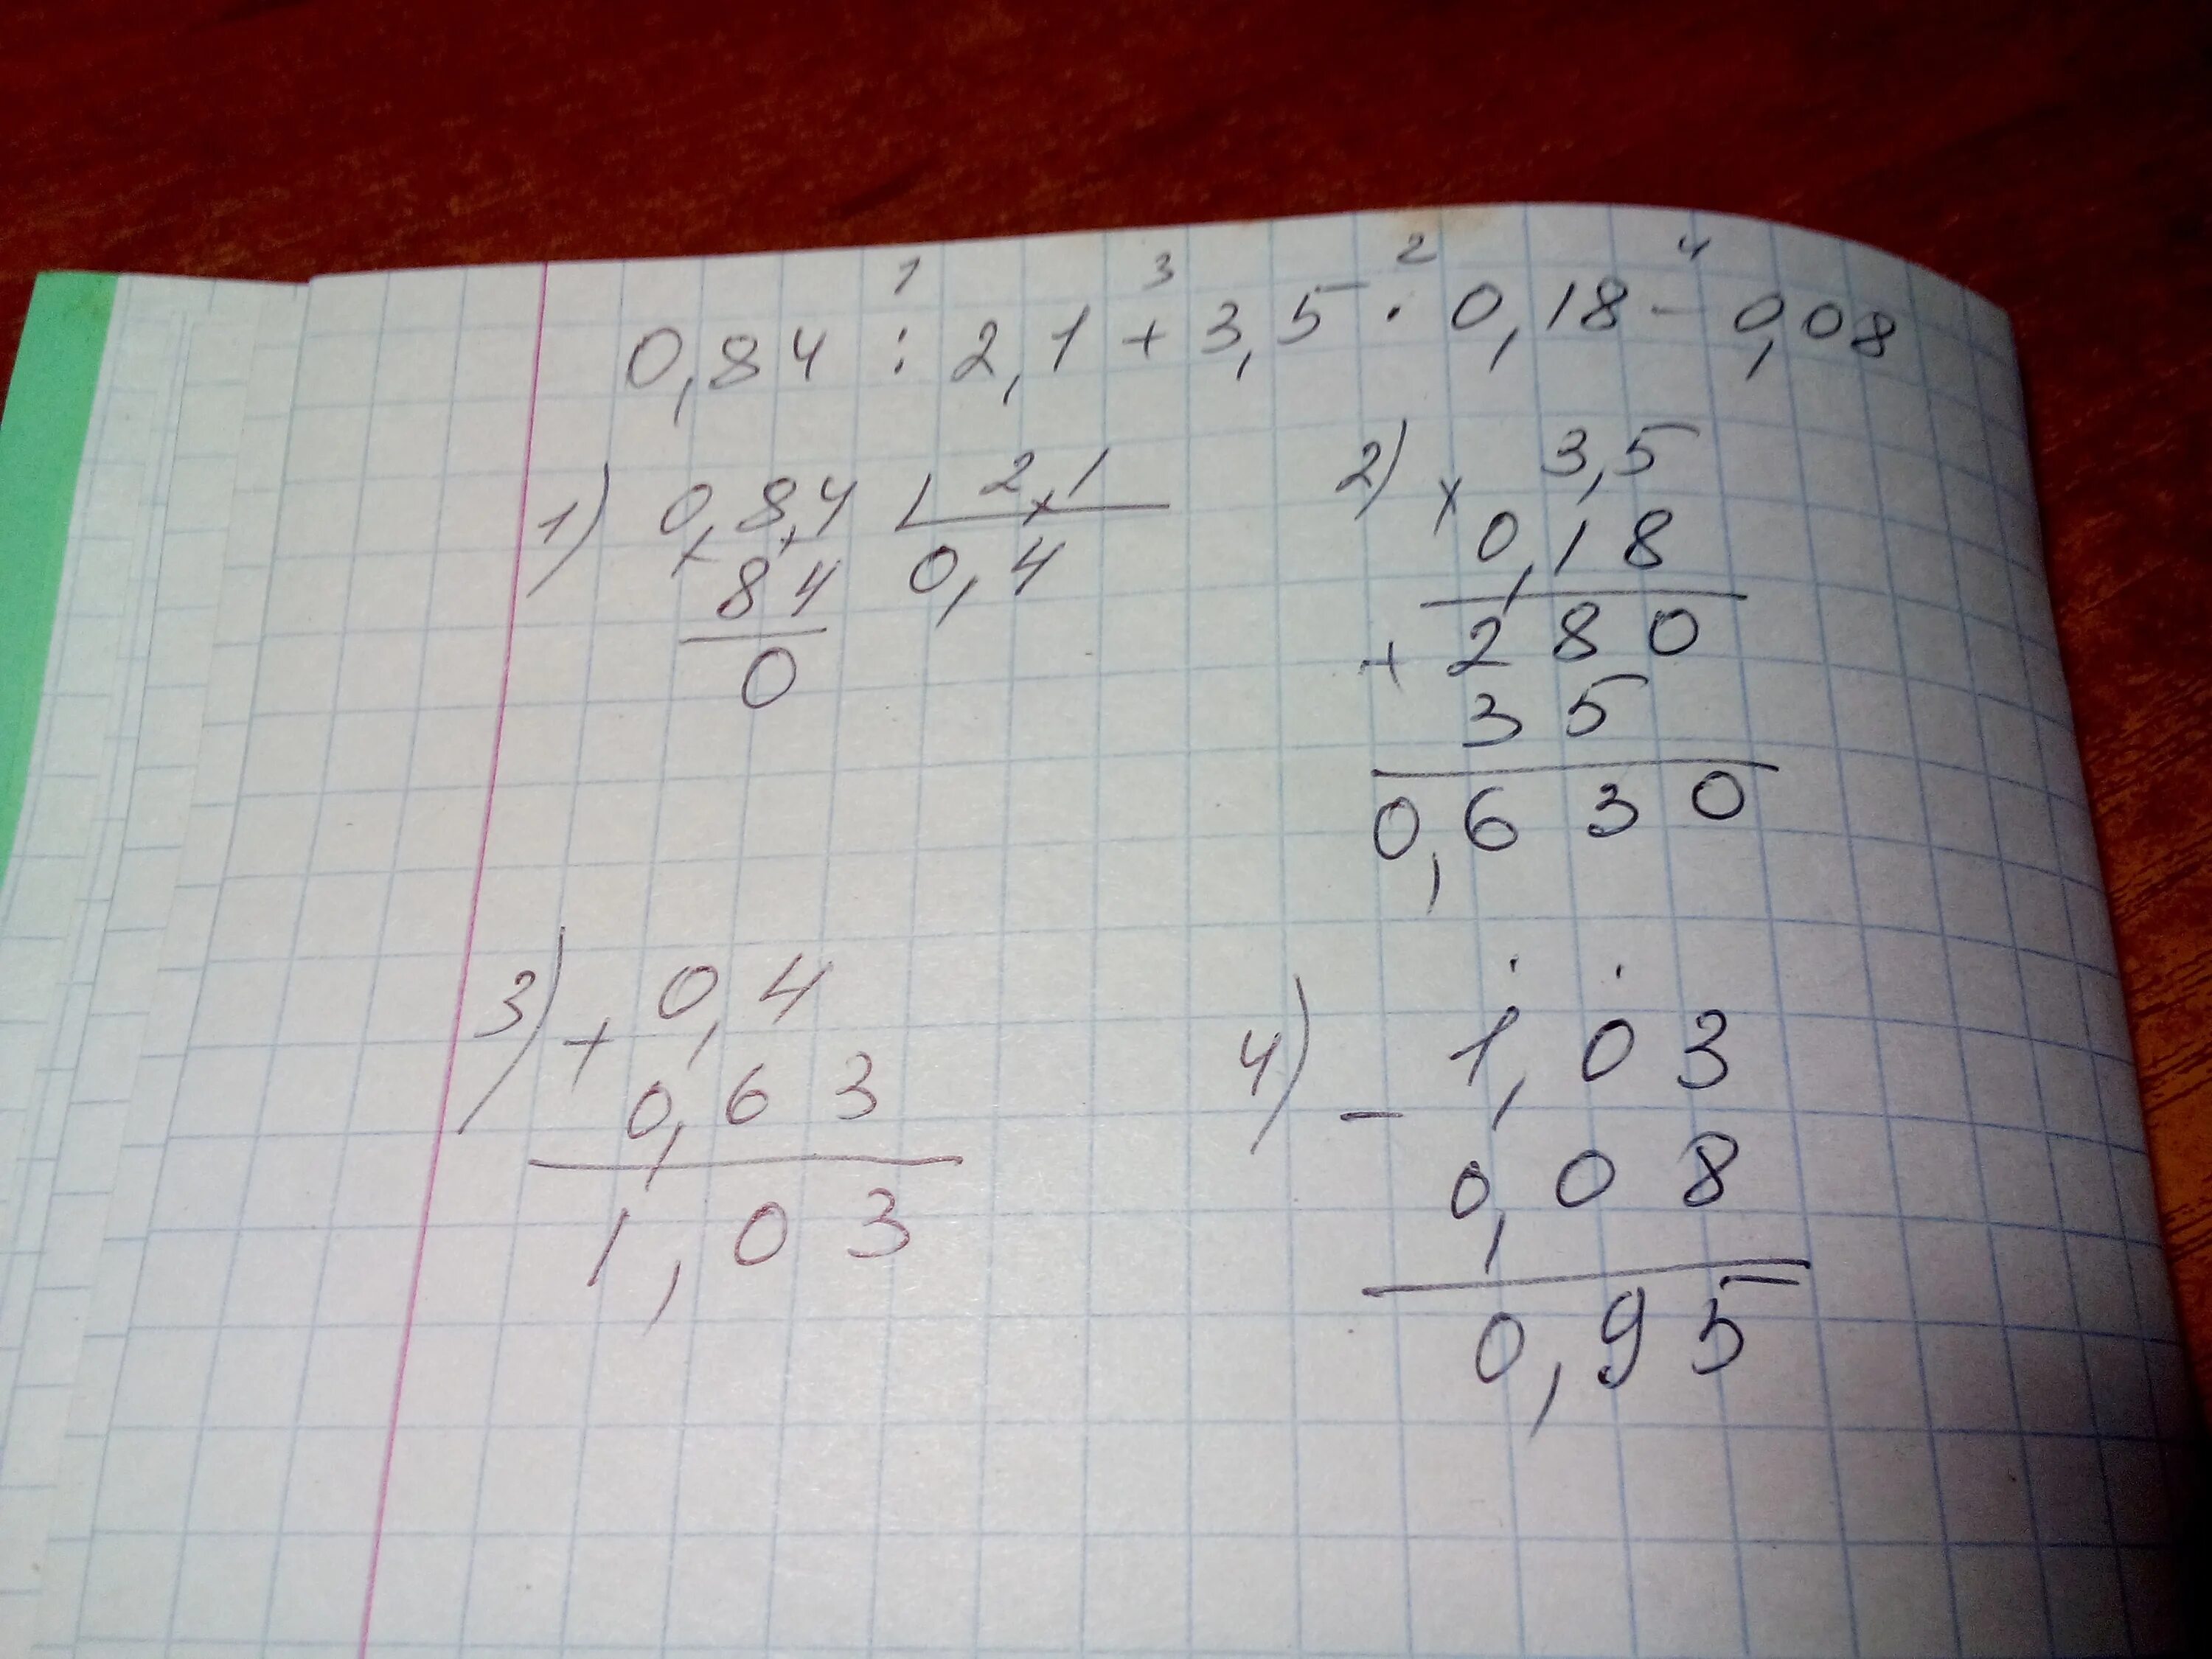 1 3 2 4
0,84 : 2,1 + 3,5 · 0,18 - 0,08
1) 0,8,4 2,1
84 0,4
0
2) × 3,5
0,18
+ 280
35
0,630
3) + 0,4
0,63
1,03
4) - 1,03
0,08
0,95